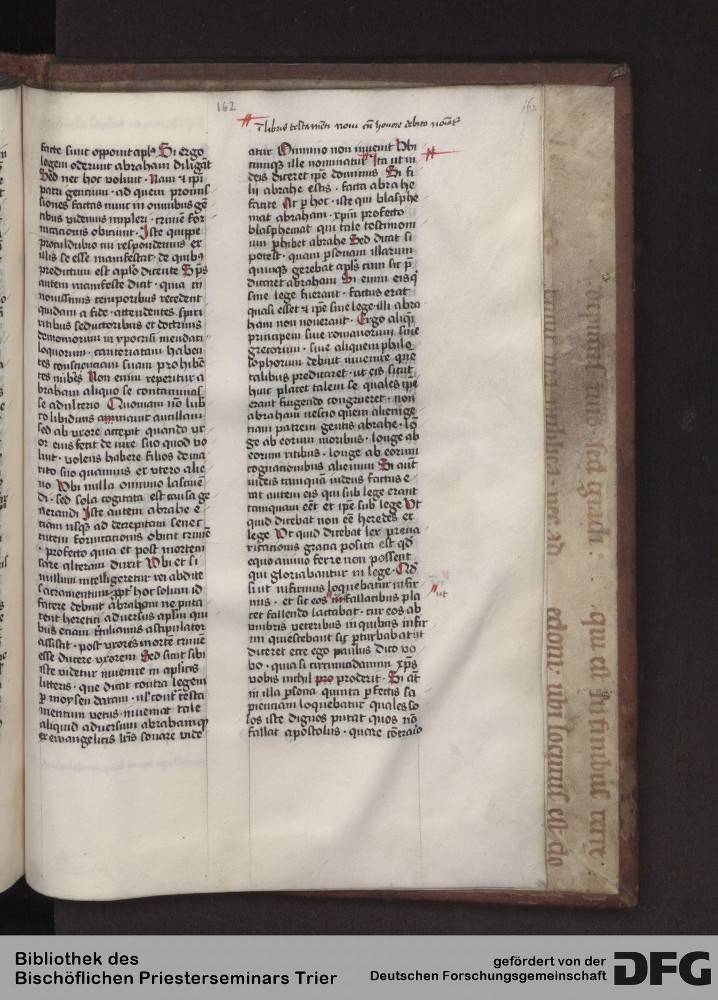 162
162
i libris testamenti noui cu honore debito noiat
facte sunt opponit apls Si ergo
legem oderunt abraham diligat
Sed nec hoc voluit Nam et ipi
patri gentium ad quem promis
siones factas nunc in omnibus ge
tibus videmus impleri crimen for
nicationis obiciunt Iste quippe
procul dubio nu respondemus ex
illis se esse manifestat de quibus
predictum est apto dicente Sps
autem manifeste dicit quia in
nouissimis temporibus recedent
quidam a fide attendentes spiri
ritibus seductoribus et doctrinis
demoniorum in ypocrisi mendaci
loquorum cauteriatam haben
tes conscienciam suam prohibe
tes nubere Non enim reperitur a
braham aliquo se contaminas
se adulterio Quoniam no lub
co libidinis ammauit ancillam
sed ab vxore accepit quando vx
or eius fetit de iure suo quod vo
luit volens habere filios de ma
rito suo quamuis ex vtero alie
no Vbi nulla omnino lasciuie
di sed sola cogitata est causa ge
nerandi Iste autem abrahe e
tiam usque ad decrepitam senec
tutem fornicationis obicit crimen
profecto quia et post mortem
sare alteram duxit Vbi et si
nullum intelligeretur rei abdite
sacramentum ppt hoc solum id
facere debuit abraham ne puta
rent heretici aduersus aplm qui
assistit post vxoris morte crimen
esse ducere vxorem Sed sicut sibi
iste videtur inuenire in aplicis
litteris que dicat contra legem
per moysen datam
mentum vetus inueniat tale
aliquid aduersum abraham
ex ewangelicis lris sonare vide
atur Omnino non inuenit Vbi
cumque ille nominatur Ita ut iu
deis diceret ipe dominus Si fi
lii abrahe estis facta abrahe
facite At p hoc iste qui blasphe
mat abraham xpm profecto
blasphemat qui tale testimoni
um phibet abrahe Sed dicat si
potest quam psonam illarum
quinque gerebat apls cum sic p
dicaret abraham Si enim eis q
sine lege fuerant factus erat
quasi esset et ipe sine lege illi abra
ham non nouerant Ergo aliqu
principem siue romanorum siue
grecorum siue aliquem philo
sophorum debuit inuenire que
talibus predicaret ut eis sicut
huic placet talem se quales ipi
erant fingendo congrueret non
abraham nescio quem alienige
nam patrem gentis abrahe lo
ge ab eorum moribus longe ab
eorum ritibus longe ab eorum
cognationibus alienum Si aut
iudeis tamquam iudeus factus e
rat autem eis qui sub lege erant
tamquam eet et ipe sub lege Vt
quid dicebat non ee heredes ex
lege Vt quid dicebat lex preua
ricacionis gracia posita est qd
equo animo ferre non possent
qui gloriabantur in lege Qd
si ut infirmus loquebatur infir
mis et sic eos infallacibus pla
cet fallendo lactabat cur eos ab
vmbris veteribus in quibus infir
mi quiescebant sic pturbabat ut
diceret ecce ego paulus dico vo
bis quia si circumcidamini xps
vobis nichil proderit Si aut
in illa psona quinta pfectis sa
pienciam loquebatur quales so
los iste dignos putat quos no
fallat apostolus quare
ut
Bibliothek des
Bischöflichen Priesterseminars Trier
gefördert von der
Deutschen Forschungsgemeinschaft
DFG